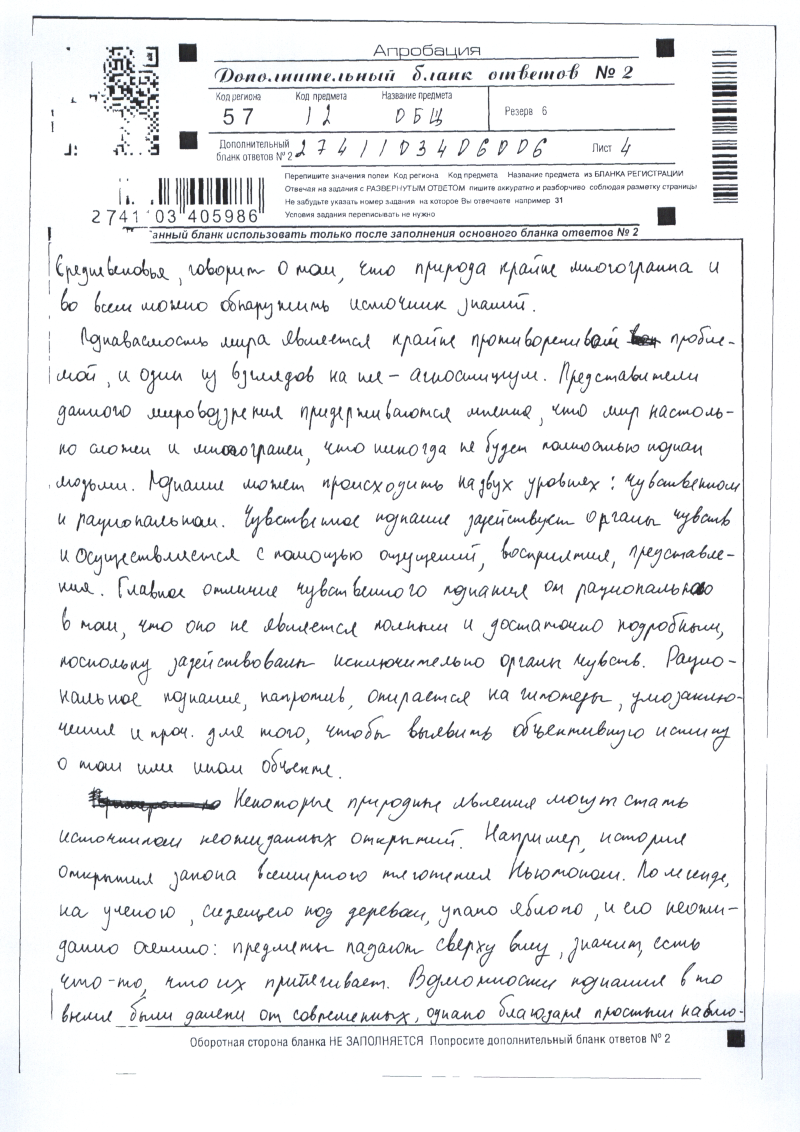 Апробация
Дополнительный бланк ответов № 2
Код региона Код предмета Название предмета
57 12 ОБЩ Резерв 6
Дополнительный
бланк ответов № 2 2741103406006 Лист 4
Перепишите значения полей Код региона Код предмета Название предмета из БЛАНКА РЕГИСТРАЦИИ
Отвечая на задания с РАЗВЕРНУТЫМ ОТВЕТОМ пишите аккуратно и разборчиво соблюдая разметку страницы
Не забудьте указать номер задания на которое Вы отвечаете например 31
Условия задания переписывать не нужно
2741 03 405986
анный бланк использовать только после заполнения основного бланка ответов № 2
Средневековья, говорит о том, что природа крайне многогранна и
во всем можно обнаружить источник знаний.
Познаваемость мира является крайне противоречивой пробле-
мой, и один из взглядов на нее – агностицизм. Представители
данного мировоззрения придерживаются мнения, что мир настоль-
но сложен и многогранен, что никогда не будет полностью познан
людьми. Познание может происходить на двух уровнях: чувственном
и рациональном. Чувственное познание задействует органы чувств
и осуществляется с помощью ощущений, восприятия, представле-
ния. Главное отличие чувственного познания от рационального
в том, что оно не является полным и достаточно подробным,
поскольку задействованы исключительно органы чувств. Рацио-
нальное познание, напротив, опирается на гипотезы, умозаклю-
чения и проч. для того, чтобы выявить объективную истину
о том или ином объекте.
Некоторые природные явления могут стать
источником неожиданных открытий. Например, история
открытия закона всемирного тяготения Ньютоном. По легенде,
на ученого, сидящего под деревом, упало яблоко, и его неожи-
данно осенило: предметы падают сверху вниз, значит, есть
что-то, что их притягивает. Возможности познания в то
время были далеки от современных, однако благодаря простым наблю-
Оборотная сторона бланка НЕ ЗАПОЛНЯЕТСЯ Попросите дополнительный бланк ответов № 2